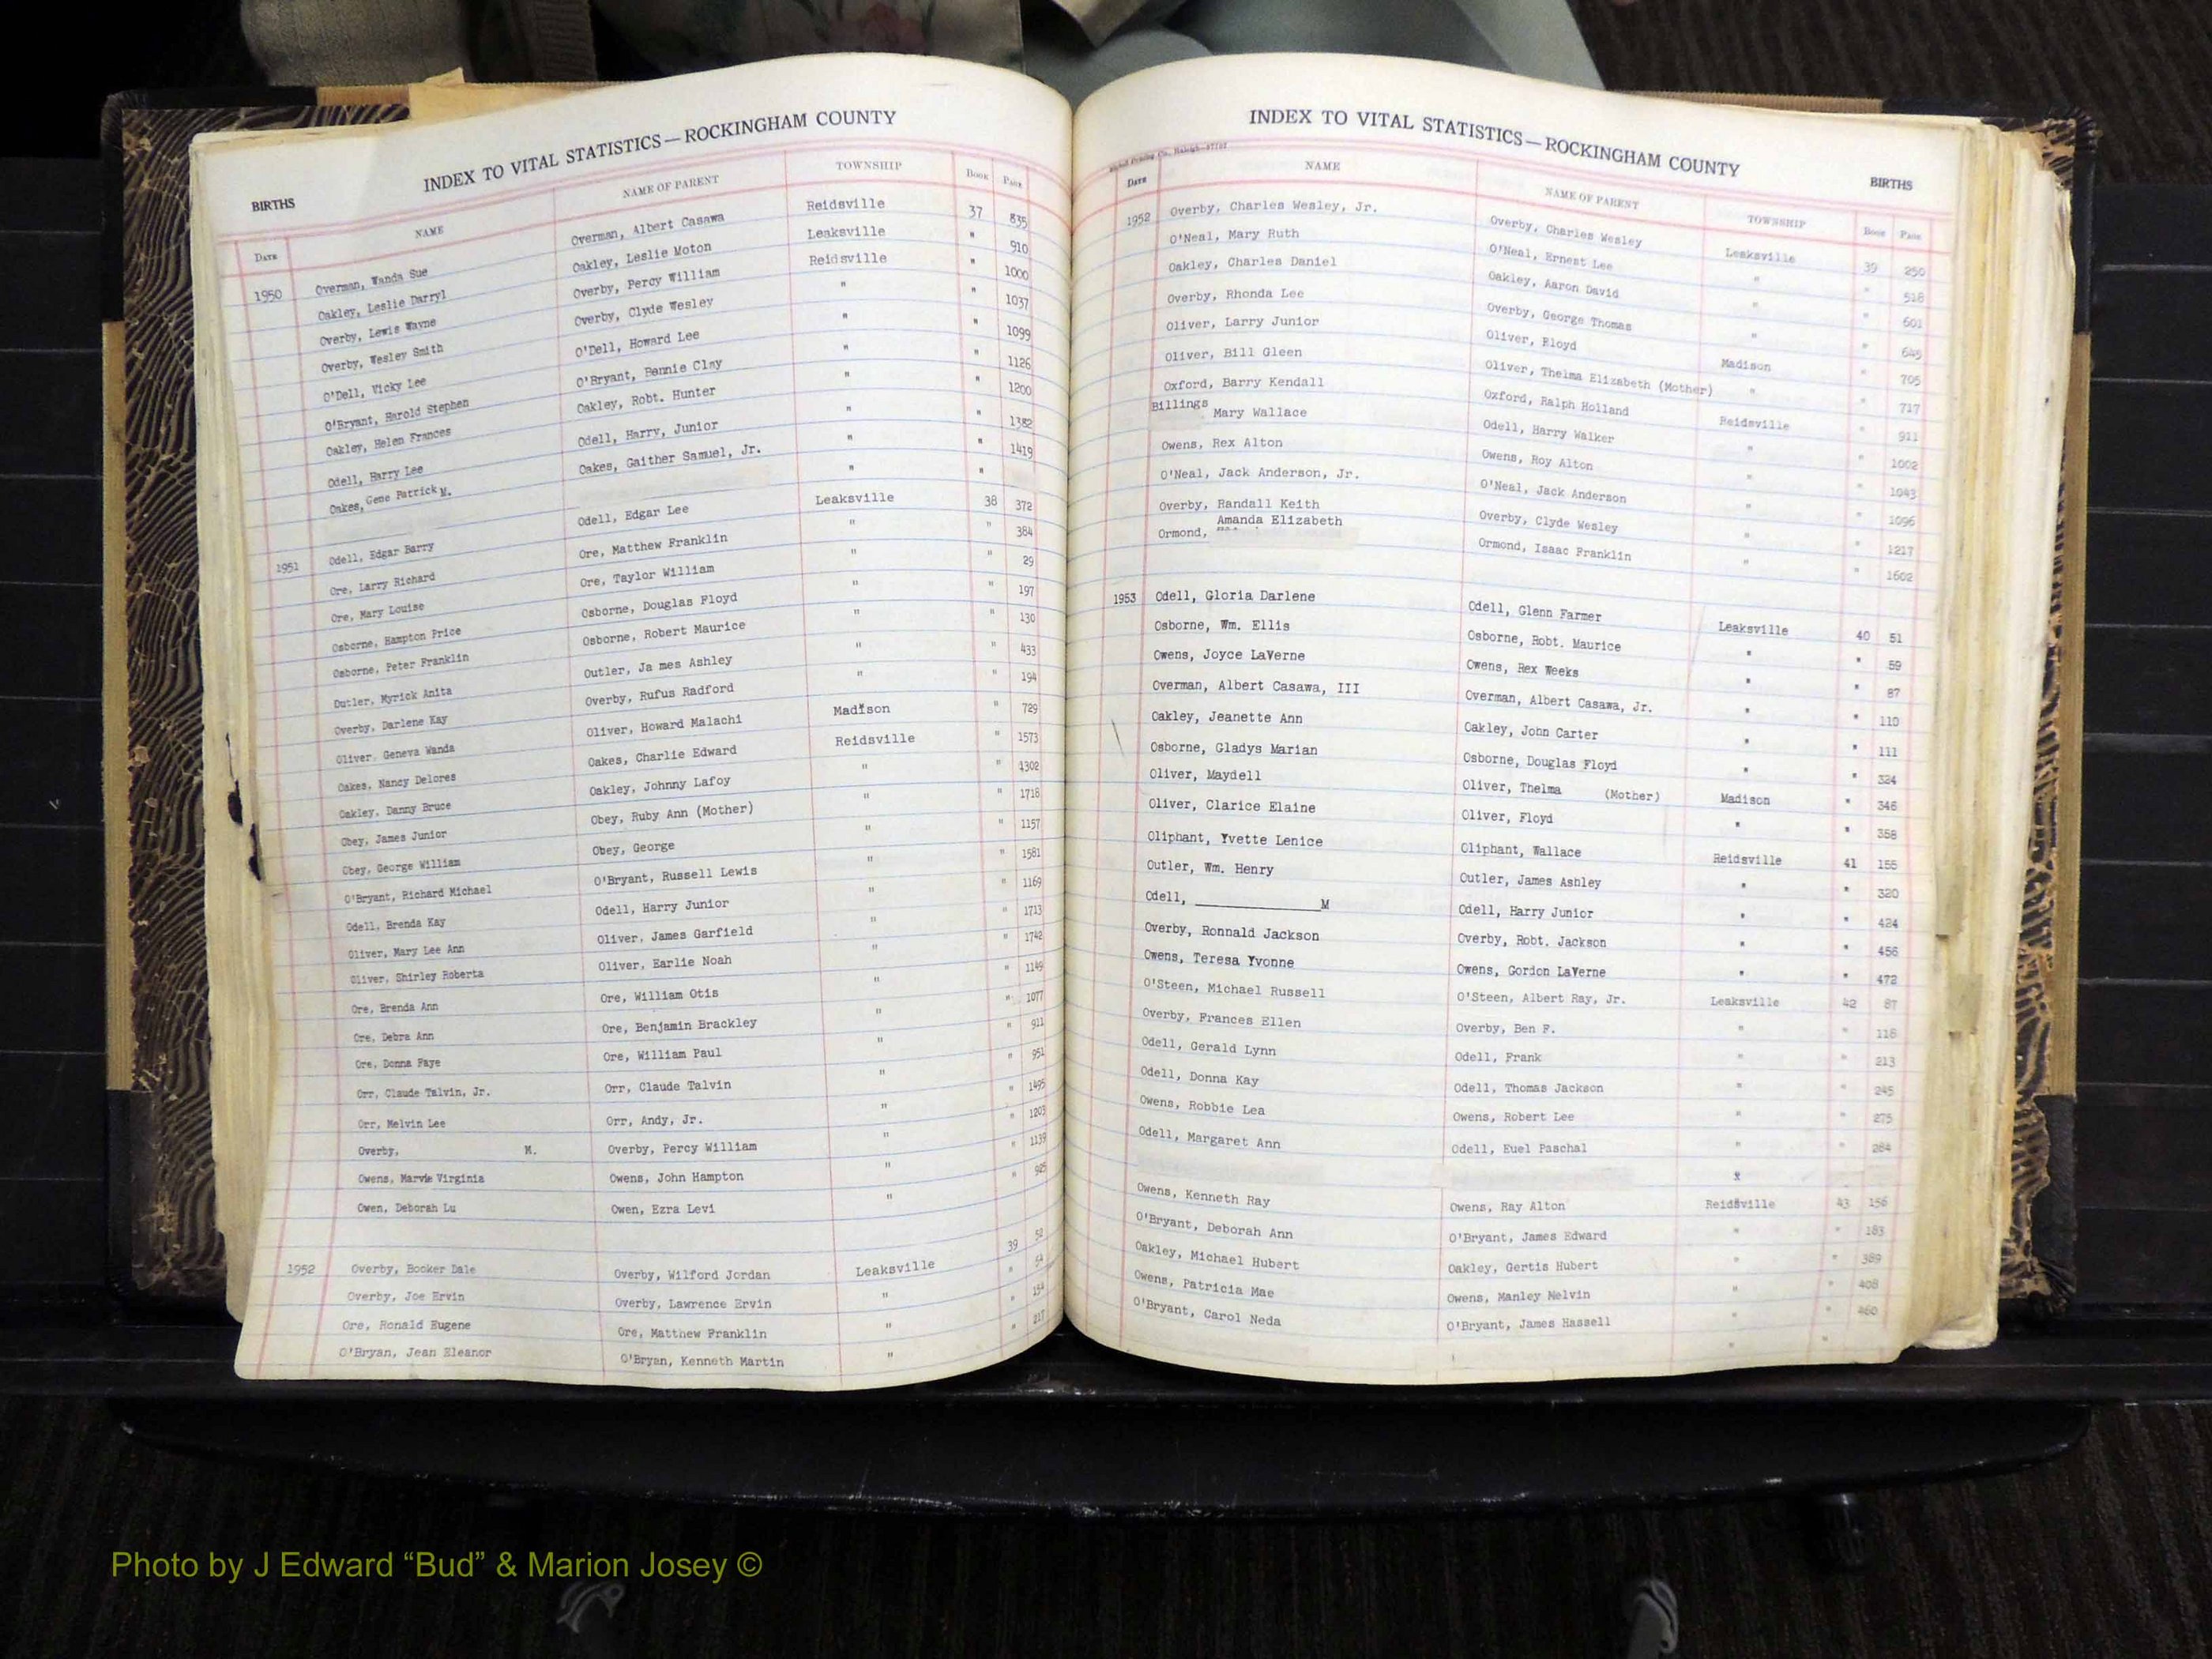 INDEX TO VITAL STATISTICS — ROCKINGHAM COUNTY
BIRTHS
DATE NAME NAME OF PARENT TOWNSHIP BOOK PAGE
1950 Overman, Wanda Sue Overman, Albert Casawa Reidsville 37 835
Oakley, Leslie Darryl Oakley, Leslie Moton Leaksville " 910
Overby, Lewis Wayne Overby, Percy William Reidsville " 1000
Overby, Wesley Smith Overby, Clyde Wesley " " 1037
O'Dell, Vicky Lee O'Dell, Howard Lee " " 1099
O'Bryant, Harold Stephen O'Bryant, Bennie Clay " " 1126
Oakley, Helen Frances Oakley, Robt. Hunter " " 1200
Odell, Harry Lee Odell, Harry, Junior " " 1382
Oakes, Gene Patrick M. Oakes, Gaither Samuel, Jr. " " 1419
" "
1951 Odell, Edgar Barry Odell, Edgar Lee Leaksville 38 372
Ore, Larry Richard Ore, Matthew Franklin " " 384
Ore, Mary Louise Ore, Taylor William " " 29
Osborne, Hampton Price Osborne, Douglas Floyd " " 197
Osborne, Peter Franklin Osborne, Robert Maurice " " 130
Outler, Myrick Anita Outler, Ja mes Ashley " " 433
Overby, Darlene Kay Overby, Rufus Radford " " 194
Oliver, Geneva Wanda Oliver, Howard Malachi Madison " 729
Oakes, Nancy Delores Oakes, Charlie Edward Reidsville " 1573
Oakley, Danny Bruce Oakley, Johnny Lafoy " " 1302
Obey, James Junior Obey, Ruby Ann (Mother) " " 1718
Obey, George William Obey, George " " 1157
O'Bryant, Richard Michael O'Bryant, Russell Lewis " " 1581
Odell, Brenda Kay Odell, Harry Junior " " 1169
Oliver, Mary Lee Ann Oliver, James Garfield " " 1713
Oliver, Shirley Roberta Oliver, Earlie Noah " " 1742
Ore, Brenda Ann Ore, William Otis " " 1149
Ore, Debra Ann Ore, Benjamin Brackley " " 1077
Ore, Donna Faye Ore, William Paul " " 911
Orr, Claude Talvin, Jr. Orr, Claude Talvin " " 951
Orr, Melvin Lee Orr, Andy, Jr. " " 1495
Overby, M. Overby, Percy William " " 1203
Owens, Marvie Virginia Owens, John Hampton " " 1139
Owen, Deborah Lu Owen, Ezra Levi " " 925
1952 Overby, Booker Dale Overby, Wilford Jordan Leaksville 39 52
Overby, Joe Ervin Overby, Lawrence Ervin " " 54
Ore, Ronald Eugene Ore, Matthew Franklin " " 154
O'Bryan, Jean Eleanor O'Bryan, Kenneth Martin " " 217
INDEX TO VITAL STATISTICS — ROCKINGHAM COUNTY
BIRTHS
DATE NAME NAME OF PARENT TOWNSHIP BOOK PAGE
1952 Overby, Charles Wesley, Jr. Overby, Charles Wesley Leaksville 39 250
O'Neal, Mary Ruth O'Neal, Ernest Lee " " 518
Oakley, Charles Daniel Oakley, Aaron David " " 601
Overby, Rhonda Lee Overby, George Thomas " " 645
Oliver, Larry Junior Oliver, Floyd Madison " 705
Oliver, Bill Gleen Oliver, Thelma Elizabeth (Mother) " " 717
Oxford, Barry Kendall Oxford, Ralph Holland Reidsville " 911
Billings Mary Wallace Odell, Harry Walker " " 1002
Owens, Rex Alton Owens, Roy Alton " " 1043
O'Neal, Jack Anderson, Jr. O'Neal, Jack Anderson " " 1096
Overby, Randall Keith Overby, Clyde Wesley " " 1217
Ormond, Amanda Elizabeth Ormond, Isaac Franklin " " 1602
1953 Odell, Gloria Darlene Odell, Glenn Farmer Leaksville 40 51
Osborne, Wm. Ellis Osborne, Robt. Maurice " " 59
Owens, Joyce LaVerne Owens, Rex Weeks " " 87
Overman, Albert Casawa, III Overman, Albert Casawa, Jr. " " 110
Oakley, Jeanette Ann Oakley, John Carter " " 111
Osborne, Gladys Marian Osborne, Douglas Floyd " " 324
Oliver, Maydell Oliver, Thelma (Mother) Madison " 346
Oliver, Clarice Elaine Oliver, Floyd " " 358
Oliphant, Yvette Lenice Oliphant, Wallace Reidsville 41 155
Outler, Wm. Henry Outler, James Ashley " " 320
Odell, ______________M Odell, Harry Junior " " 424
Overby, Ronnald Jackson Overby, Robt. Jackson " " 456
Owens, Teresa Yvonne Owens, Gordon LaVerne " " 472
O'Steen, Michael Russell O'Steen, Albert Ray, Jr. Leaksville 42 87
Overby, Frances Ellen Overby, Ben F. " " 118
Odell, Gerald Lynn Odell, Frank " " 213
Odell, Donna Kay Odell, Thomas Jackson " " 245
Owens, Robbie Lea Owens, Robert Lee " " 275
Odell, Margaret Ann Odell, Euel Paschal " " 284
Owens, Kenneth Ray Owens, Ray Alton Reidsville 43 156
O'Bryant, Deborah Ann O'Bryant, James Edward " " 183
Oakley, Michael Hubert Oakley, Gertis Hubert " " 389
Owens, Patricia Mae Owens, Manley Melvin " " 408
O'Bryant, Carol Neda O'Bryant, James Hassell " " 460
Photo by J Edward “Bud” & Marion Josey ©